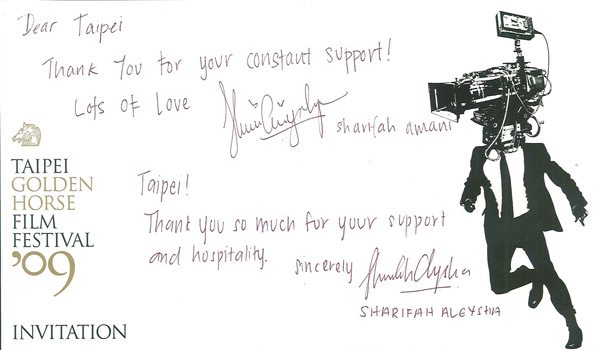 Dear Taipei
Thank You for your constant support!
Lots of love
sharifah amani
TAIPEI
GOLDEN
HORSE
FILM
FESTIVAL
'09
INVITATION
Taipei!
Thank you so much for your support
and hospitality.
sincerely
SHARIFAH ALEYSHA